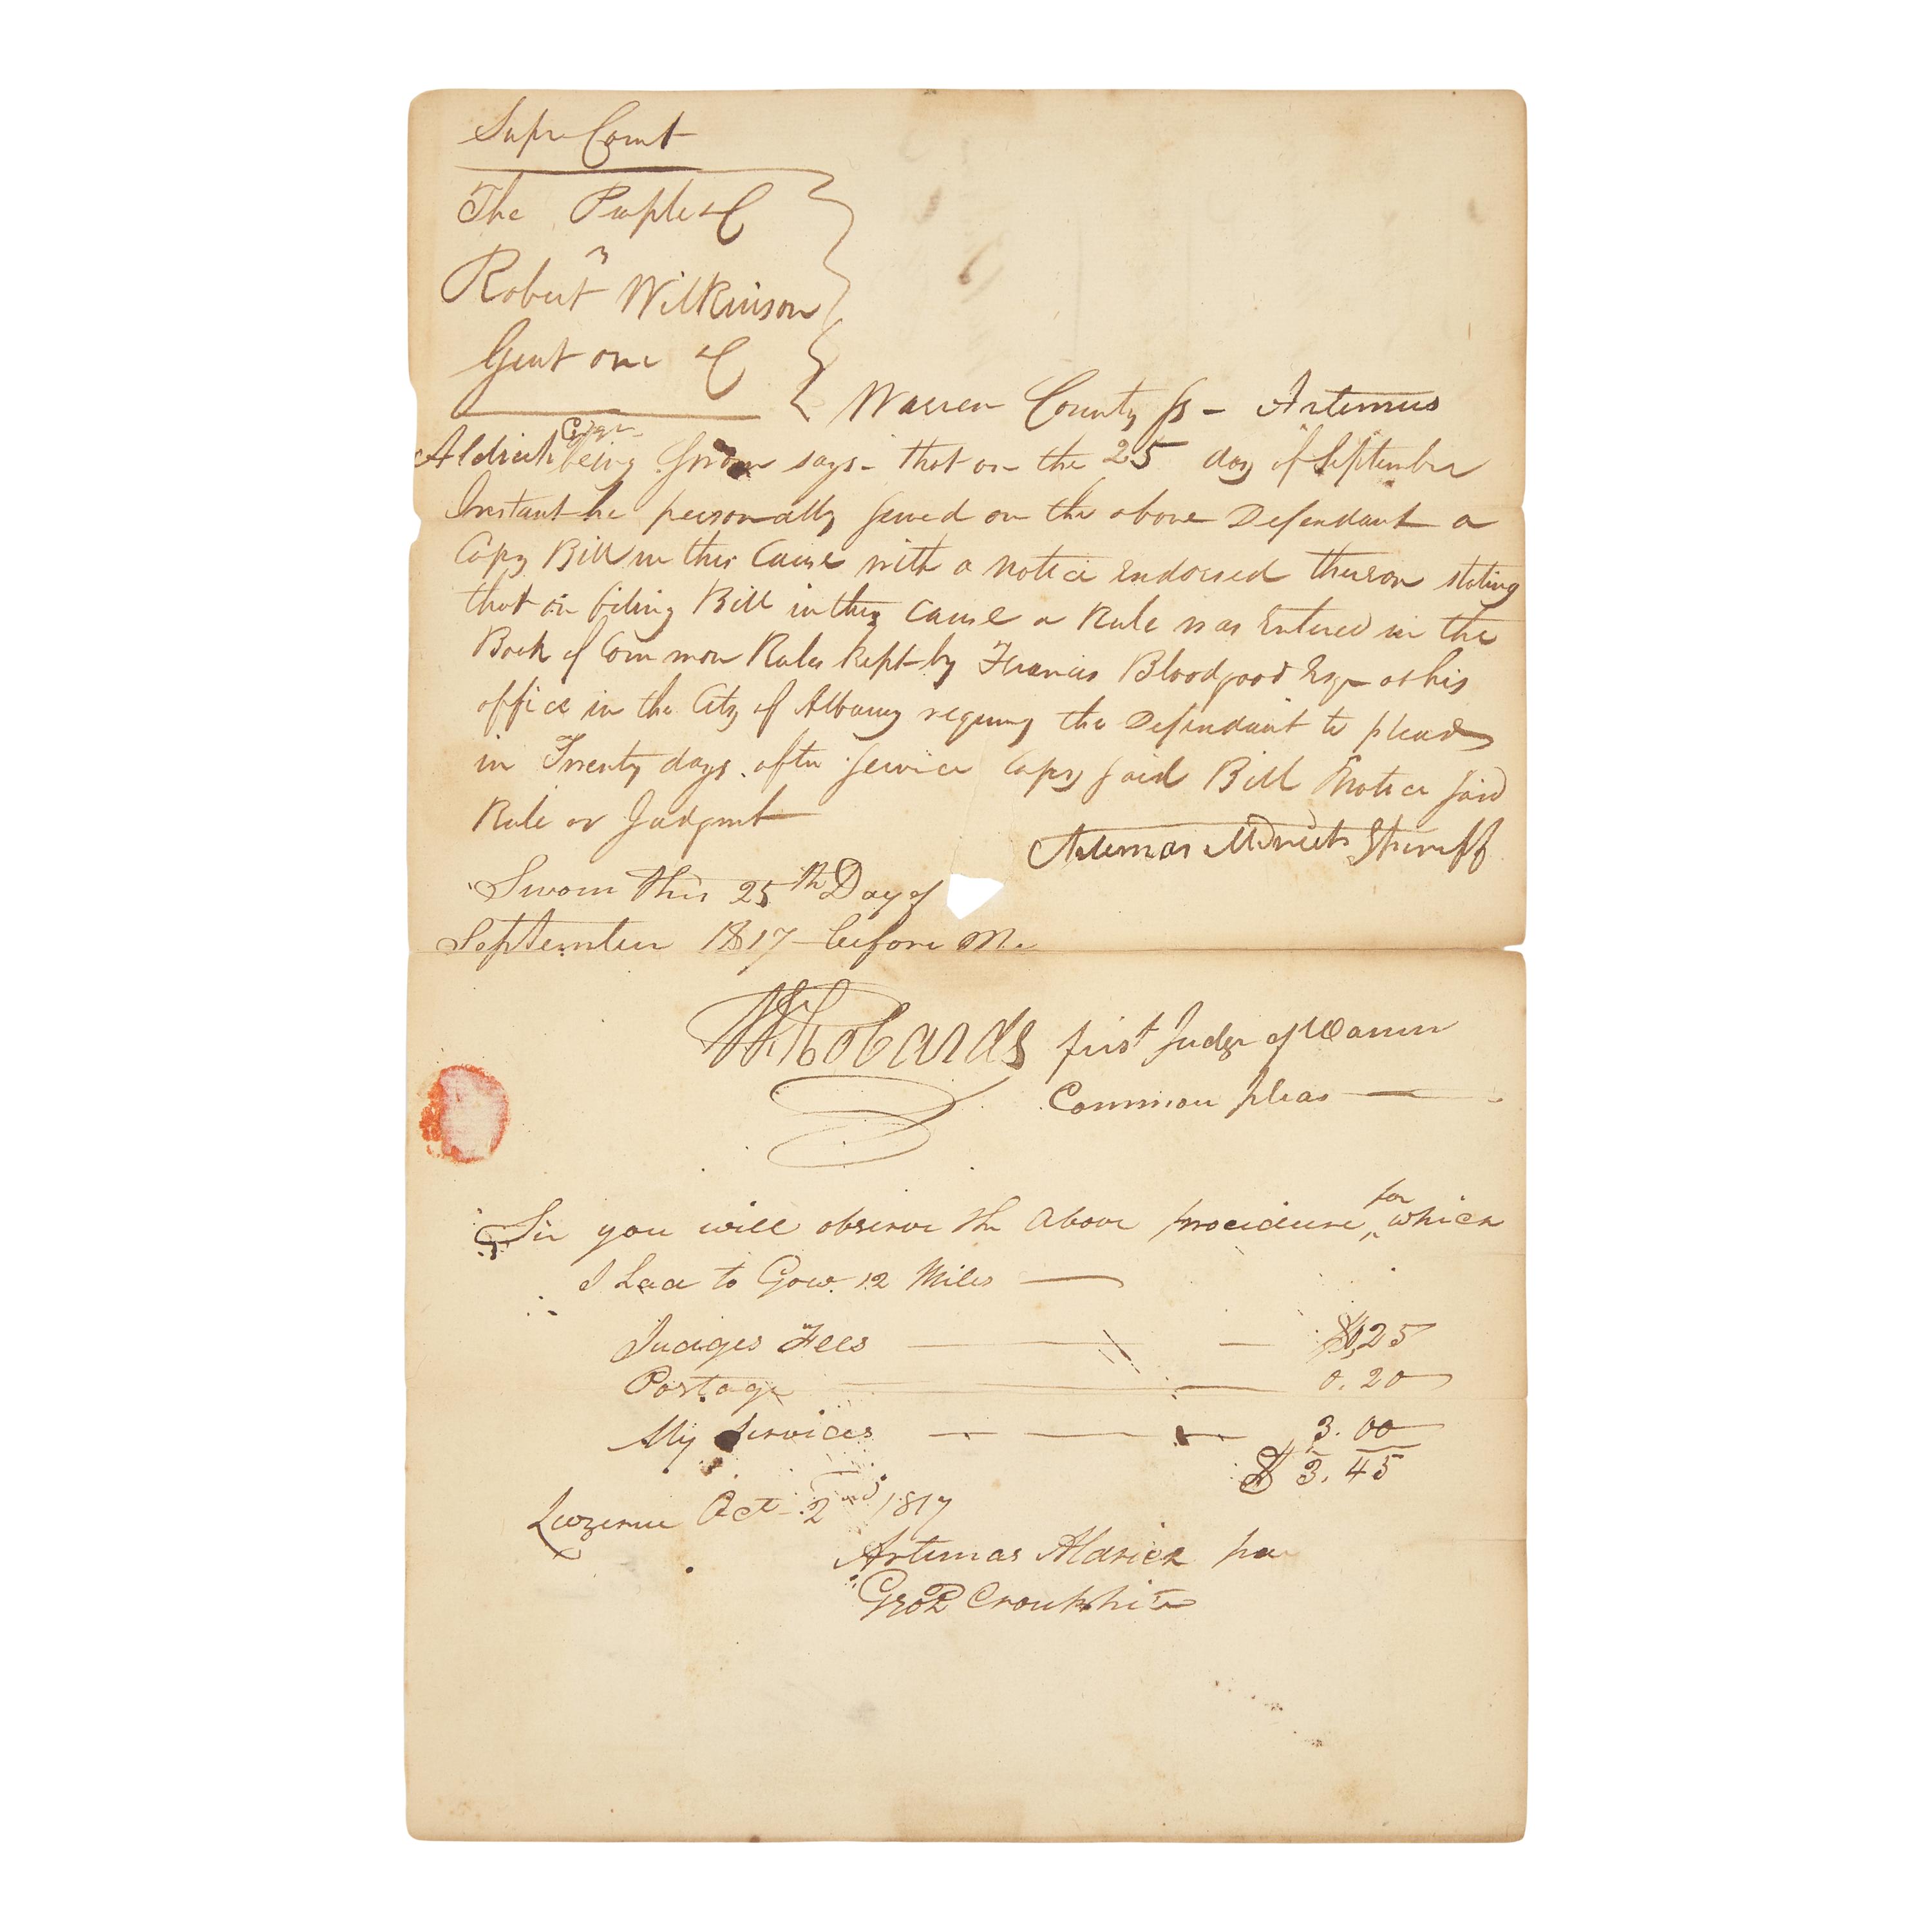 Supr Court
The People &C
vs
Robert Wilkinson
Gent one &C
Warren County ss - Artemus
Aldrich Esqr being sworn says - that on the 25 day of September
Instant he personally served on the above Defendant a
Copy Bill in this Cause with a notice endorsed thereon stating
that on filing Bill in this cause a Rule was Entered in the
Book of Common Rules kept by Francis Bloodgood Esqr at his
office in the City of Albany requiring the Defendant to plead
in Twenty days after service Copy said Bill Notice said
Rule or Judgment
Artemas Aldrich Sheriff
Sworn this 25th Day of
September 1817 before Me
Robards first Judge of Warren
Common pleas
Sir you will observe the above procedure, for which
I had to Gow 12 Miles
Judges Fees $0,25
Postage 0.20
My Services 3.00
$ 3.45
Luzerne Oct 2nd 1817
Artemas Aldrich per
Geo P Cronkhite